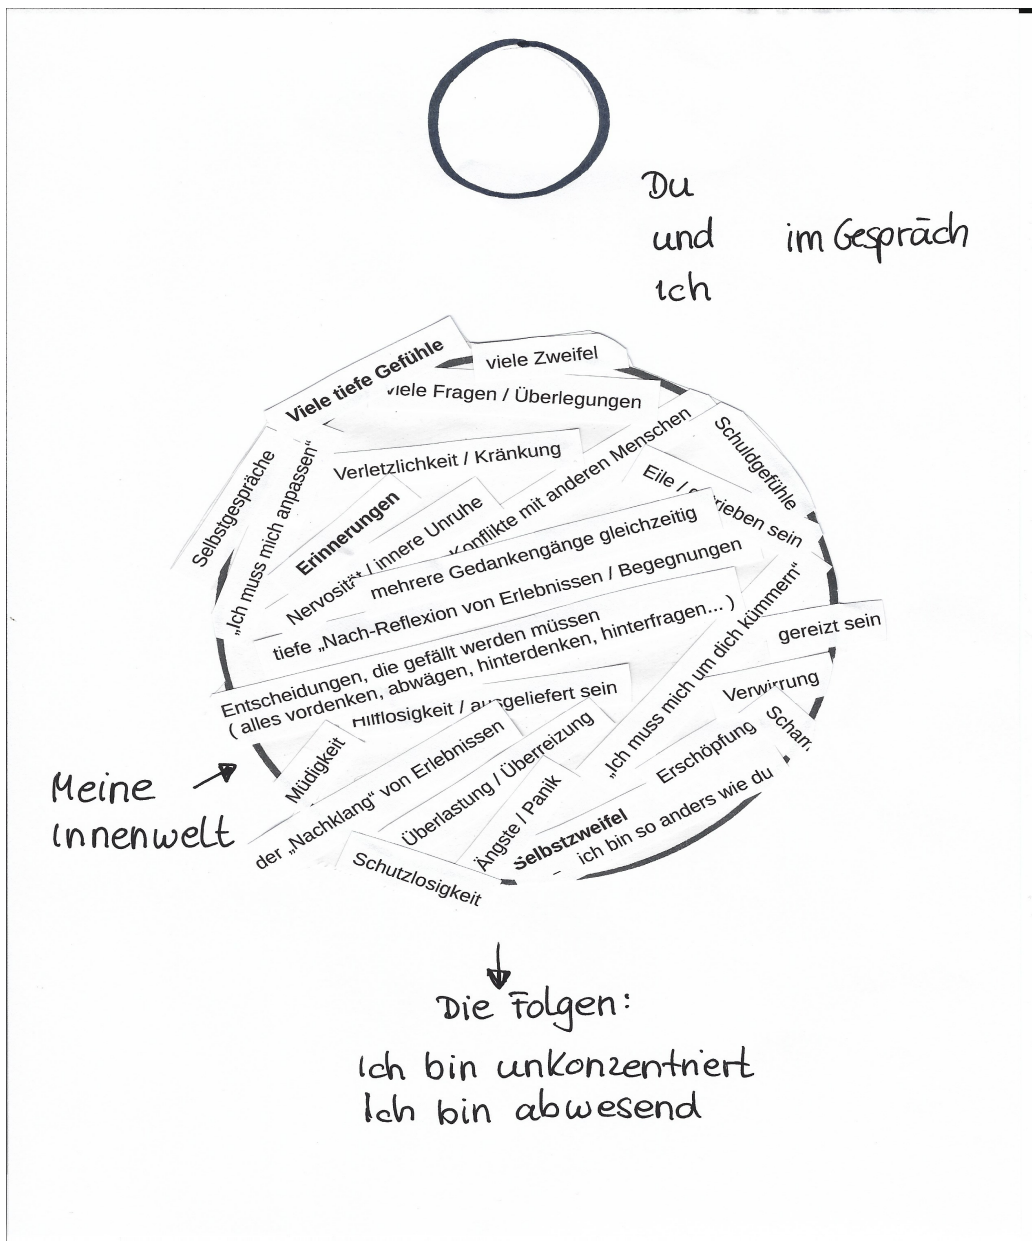 Du
und im Gespräch
Ich
Viele tiefe Gefühle
viele Zweifel
viele Fragen / Überlegungen
Selbstgespräche
„Ich muss mich anpassen“
Verletzlichkeit / Kränkung
Konflikte mit anderen Menschen
Schuldgefühle
Eile / getrieben sein
Erinnerungen
Nervosität / innere Unruhe
mehrere Gedankengänge gleichzeitig
tiefe „Nach-Reflexion von Erlebnissen / Begegnungen
Entscheidungen, die gefällt werden müssen
( alles vordenken, abwägen, hinterdenken, hinterfragen... )
„Ich muss mich um dich kümmern“
gereizt sein
Hilflosigkeit / ausgeliefert sein
Verwirrung
Scham
Müdigkeit
der „Nachklang“ von Erlebnissen
Überlastung / Überreizung
Erschöpfung
Ängste / Panik
Selbstzweifel
ich bin so anders wie du
Schutzlosigkeit
Meine
Innenwelt
Die Folgen:
Ich bin unkonzentriert
Ich bin abwesend